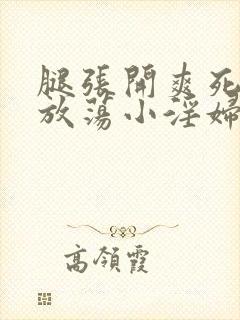 腿張開爽死
放蕩小淫婦
高領霞